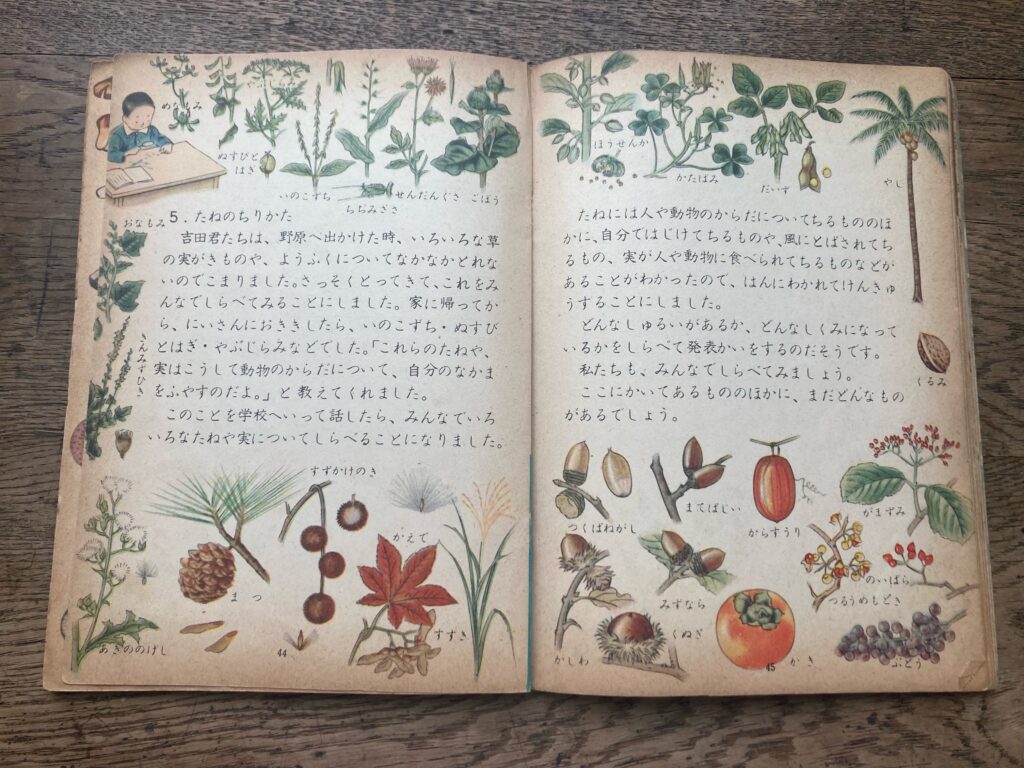 めなもみ
ぬすびと
はぎ
いのこずち
ちぢみざさ
せんだんぐさ
ごぼう
おなもみ
5．たねのちりかた
吉田君たちは、野原へ出かけた時、いろいろな草
の実がきものや、ようふくについてなかなかとれな
いのでこまりました。さっそくとってきて、これをみ
んなでしらべてみることにしました。家に帰ってか
ら、にいさんにおききしたら、いのこずち・ぬすび
とはぎ・やぶじらみなどでした。「これらのたねや、
実はこうして動物のからだについて、自分のなかま
をふやすのだよ。」と教えてくれました。
このことを学校へいって話したら、みんなでいろ
いろなたねや実についてしらべることになりました。
きんみずひき
すずかけのき
かえで
まつ
すすき
あきののげし
44
ほうせんか
かたばみ
だいず
やし
たねには人や動物のからだについてちるもののほ
かに、自分ではじけてちるものや、風にとばされてち
るもの、実が人や動物に食べられてちるものなどが
あることがわかったので、はんにわかれてけんきゅ
うすることにしました。
どんなしゅるいがあるか、どんなしくみになって
いるかをしらべて発表かいをするのだそうです。
私たちも、みんなでしらべてみましょう。
ここにかいてあるもののほかに、まだどんなもの
があるでしょう。
くるみ
つくばねがし
まてばしい
からすうり
がまずみ
のいばら
つるうめもどき
みずなら
くぬぎ
かしわ
かき
ぶどう
45